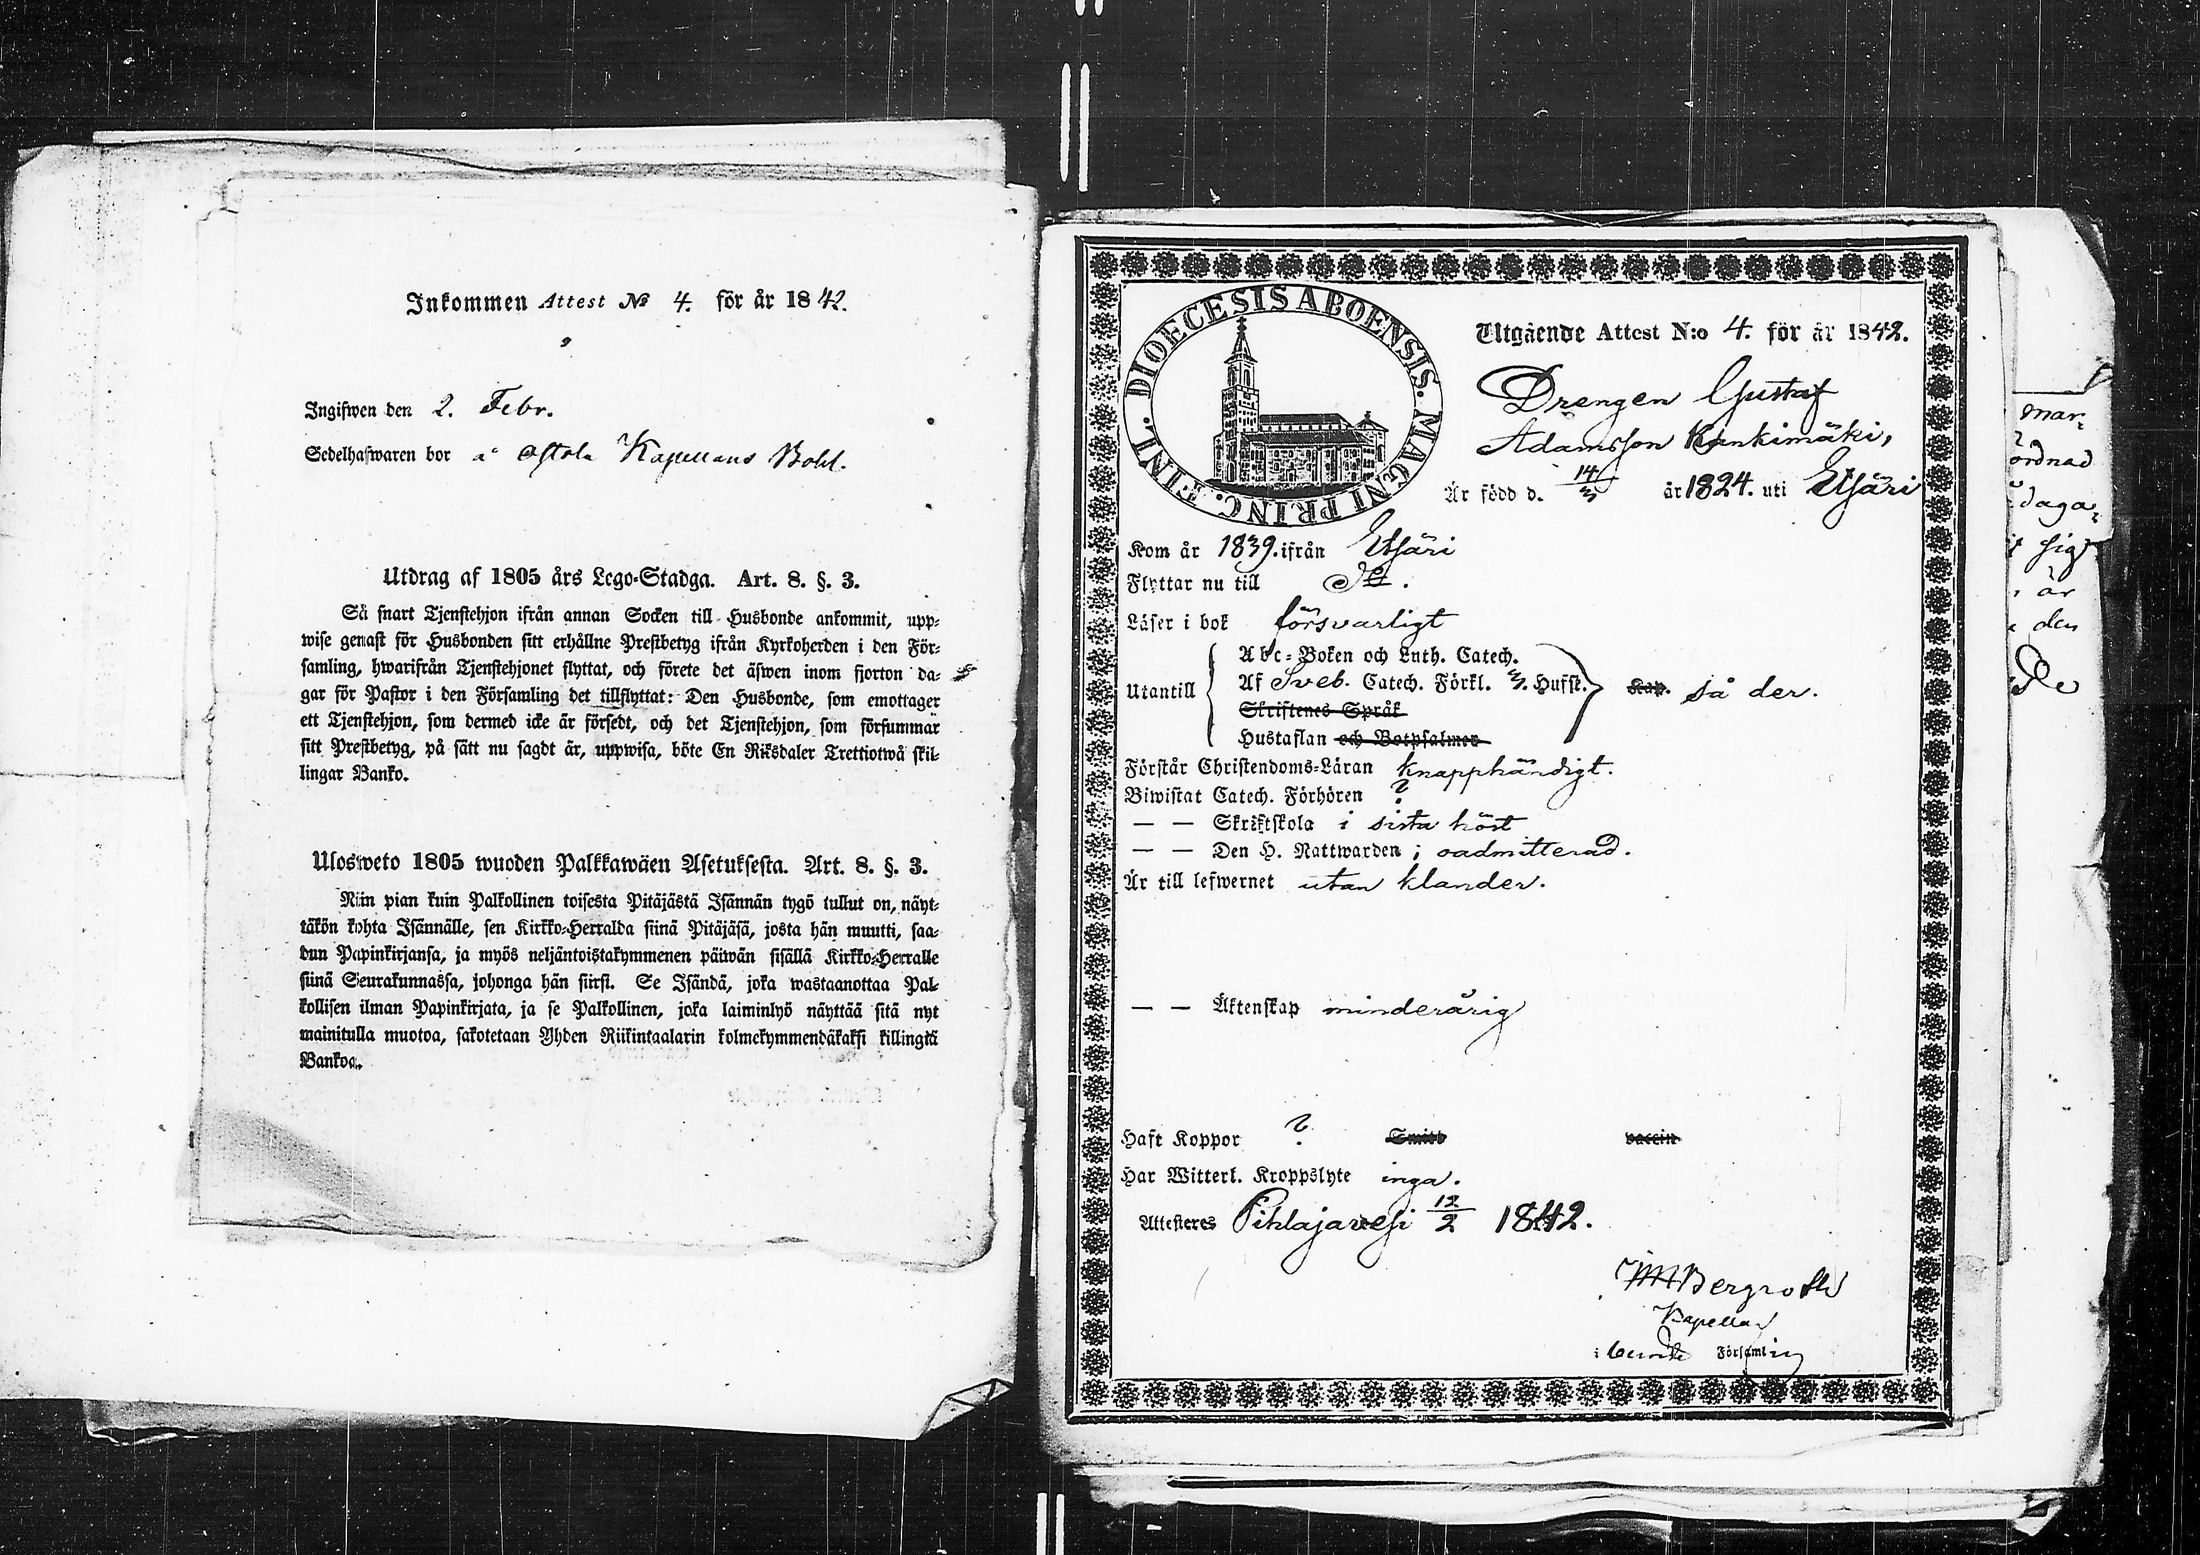 Inkommen Attest No 4. för år 1842.
Ingifwen den 2. Febr.
Sedelhafwaren bor å Ostola Kapellans Bohl.
Utdrag af 1805 års Lego-Stadga. Art. 8. §. 3.
Så snart Tjenstehjon ifrån annan Socken till Husbonde ankommit, upp-
wise genast för Husbonden sitt erhållne Prestbetyg ifrån Kyrkoherden i den För-
samling, hwarifrån Tjenstehjonet flyttat, och förete det äfwen inom fjorton da-
gar för Pastor i den Församling det tillflyttat: Den Husbonde, som emottager
ett Tjenstehjon, som dermed icke är försedt, och det Tjenstehjon, som försummar
sitt Prestbetyg, på sätt nu sagdt är, uppwisa, böte En Riksdaler Trettiotwå skil-
lingar Banko.
Ulosweto 1805 wuoden Palkkawäen Asetuksesta. Art. 8. §. 3.
Niin pian kuin Palkollinen toisesta Pitäjästä Isännän tygö tullut on, näyt-
täkön kohta Isännälle, sen Kirkko-Herralda siinä Pitäjäsä, josta hän muutti, saa-
dun Papinkirjansa, ja myös neljäntoistakymmenen päiwän sisällä Kirkko-Herralle
siinä Seurakunnassa, johonga hän siirsi. Se Isändä, joka wastaanottaa Pal-
kollisen ilman Papinkirjata, ja se Palkollinen, joka laiminlyö näyttää sitä nyt
mainitulla muotoa, sakotetaan Yhden Riikintaalarin kolmekymmendäkaksi killingiä
Bankoa.
DIOECESIS ABOENSIS. MAGNI PRINC. FINL.
Utgående Attest N:o 4. för år 1842.
Drengen Gustaf
Adamsson Kankimäki,
Är född d. 14/3 år 1824. uti Etsäri
Kom år 1839. ifrån Etsäri
Flyttar nu till
Läser i bok försvarligt
Abc-Boken och Luth. Catech.
Utantill Af Sveb. Catech. Förkl. 3. Hufst. Kap. så der.
Skriftenes Språk
Hustaflan och Botpsalmer
Förstår Christendoms-Läran knapphändigt.
Biwistat Catech. Förhören ?
— — Skriftskola i sista höst
— — Den H. Nattwarden ; oadmitterad.
Är till lefwernet utan klander.
— — Äktenskap minderårig
Haft Koppor ? Smitt vaccin
Har Witterl. Kroppslyte inga.
Attesteres Pihlajavesi 12/2 1842.
Bergroth
Kapellan
i Församling
mar-
ordnad
daga-
sig
är
den